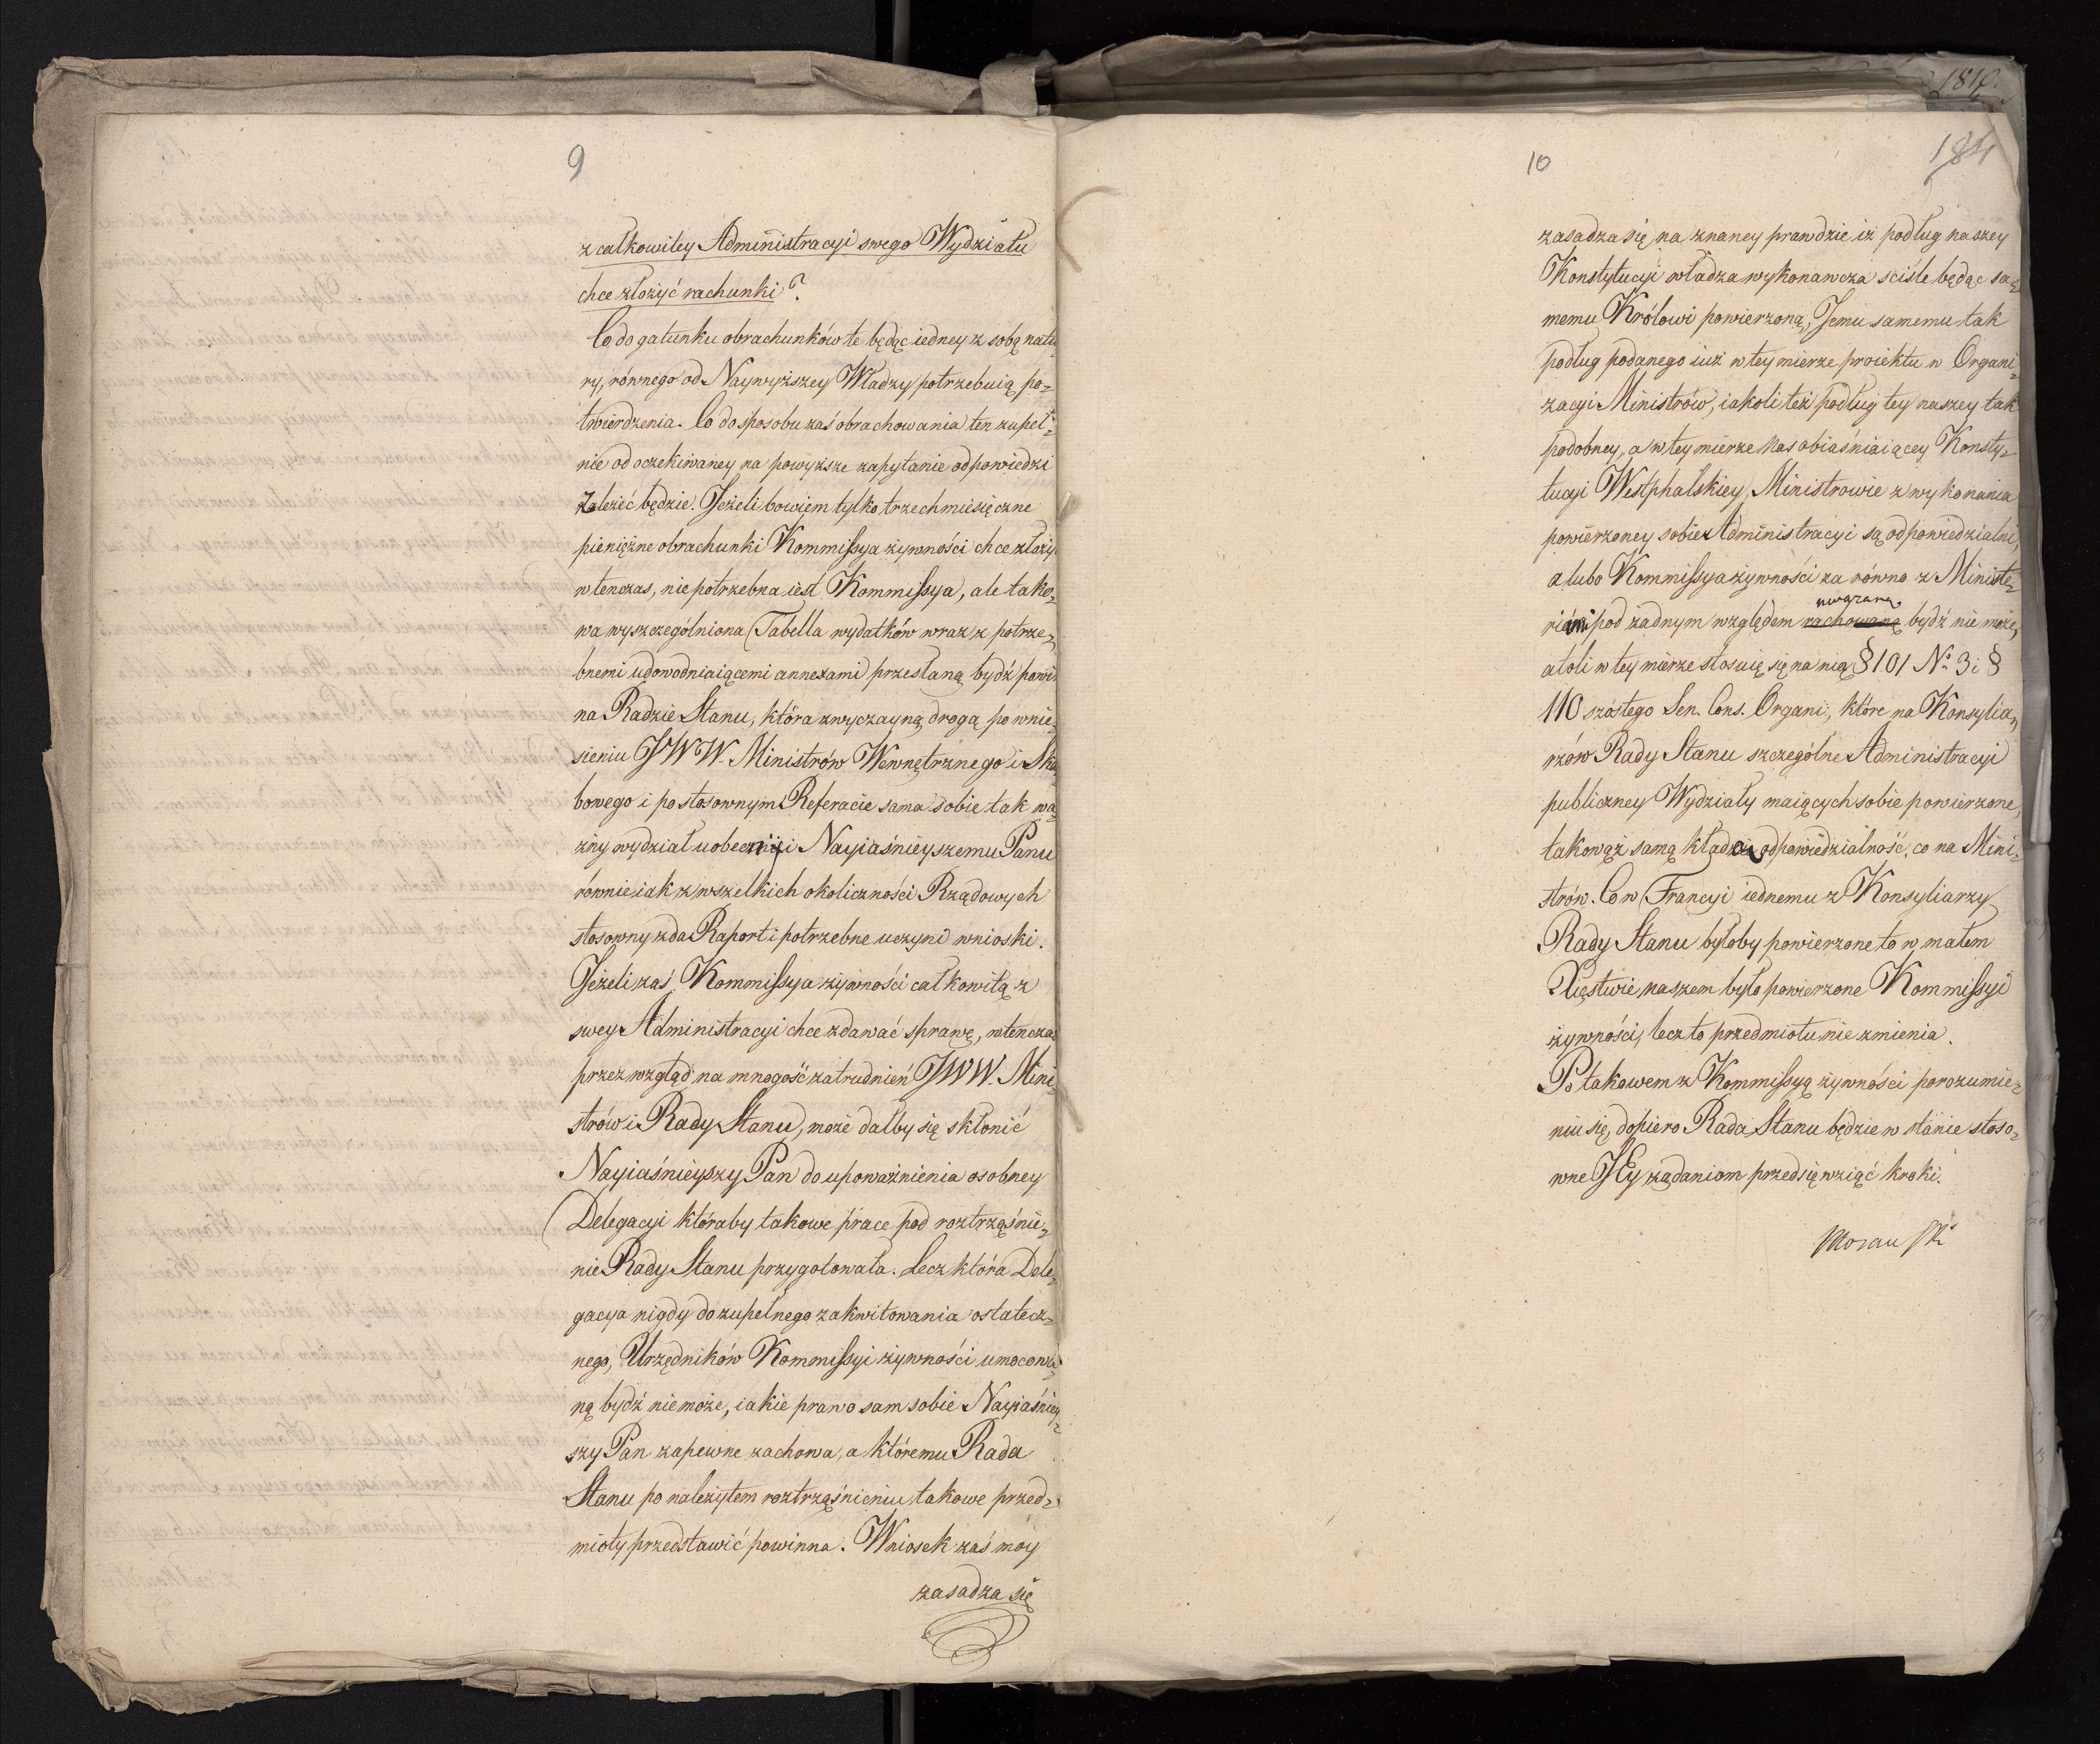 9
z całkowitey Administracyi swego Wydziału
chce złożyć rachunki?
Co do gatunku obrachunków te będąc iedney z sobą natu
ry, równego od Naywyższey Władzy potrzebuią po-
twierdzenia. Co do sposobu zaś obrachowania ten zupeł-
nie od oczekiwaney na powyższe zapytanie odpowiedzi
zależeć będzie. Jeżeli bowiem tylko trzechmiesięczne
pieniężne obrachunki Kommissya żywności chce złoży
wtenczas, nie potrzebna iest Kommissya, ale tako-
wa wyszczególniona Tabella wydatków wraz z potrze-
bnemi udowodniaiącemi annexami przesłaną bydź powi
na Radzie Stanu, która zwyczayną drogą po wnie-
sieniu JWW. Ministrów Wewnętrznego i Ska
bowego i po stosownym Referacie sama sobie tak wa
żny wydział uobecni i Nayiaśnieyszemu Panu
równie iak z wszelkich okoliczności Rządowych
stosowny zda Raport i potrzebne uczyni wnioski.
Jeżeli zaś Kommissya żywności całkowitą z
swey Administracyi chce zdawać sprawę, wtenczas
przez wzgląd na mnogość zatrudnień JWW. Mini-
strów i Rady Stanu, może dałby się skłonić
Nayiaśnieyszy Pan do upoważnienia osobney
Delegacyi któraby takowe prace pod roztrząśnie-
nie Rady Stanu przygotowała. Lecz która Dele-
gacya nigdy do zupełnego zakwitowania ostatecz-
nego, Urzędników Kommissyi żywności umocowa
ną bydź nie może, iakie prawo sam sobie Nayiaśniey-
szy Pan zapewne zachowa, a któremu Rada
Stanu po należytem roztrząśnieniu takowe przed-
mioty przedstawić powinna. Wniosek zaś móy
zasadza się
1810.
10
184
zasadza się na znaney prawdzie iż podług naszey
Konstytucyi władza wykonawcza sciśle będąc sa-
memu Królowi powierzoną, Jemu samemu tak
podług podanego iuż w tey mierze proiektu w Organi-
zacyi Ministrów, iakoli też podług tey naszey tak
podobney, a w tey mierze nas obiaśniaiącey Konsty-
tucyi Westphalskiey, Ministrowie z wykonania
powierzoney sobie Administracyi są odpowiedzialni,
a lubo Kommissya żywności za równo z Ministe-
uważaną
riami pod żadnym względem rachowaną bydź nie może,
atoli w tey mierze stosuię się na nią § 101 No 3 i §
110 szóstego Sen. Cons. Organi., które na Konsylia-
rzów Rady Stanu szczególne Administracyi
publiczney Wydziały maiących sobie powierzone,
takowąż samą kładą odpowiedzialność, co na Mini-
strów. Co w Francyi iednemu z Konsyliarzy
Rady Stanu byłoby powierzone to w małem
Xięstwie naszem było powierzone Kommissyi
żywności, lecz to przedmiotu nie zmienia.
Po takowem z Kommissyą żywności porozumie-
niu się, dopiero Rada Stanu będzie w stanie stoso-
wne JEy żądaniom przedsięwziąć kroki.
Morawski